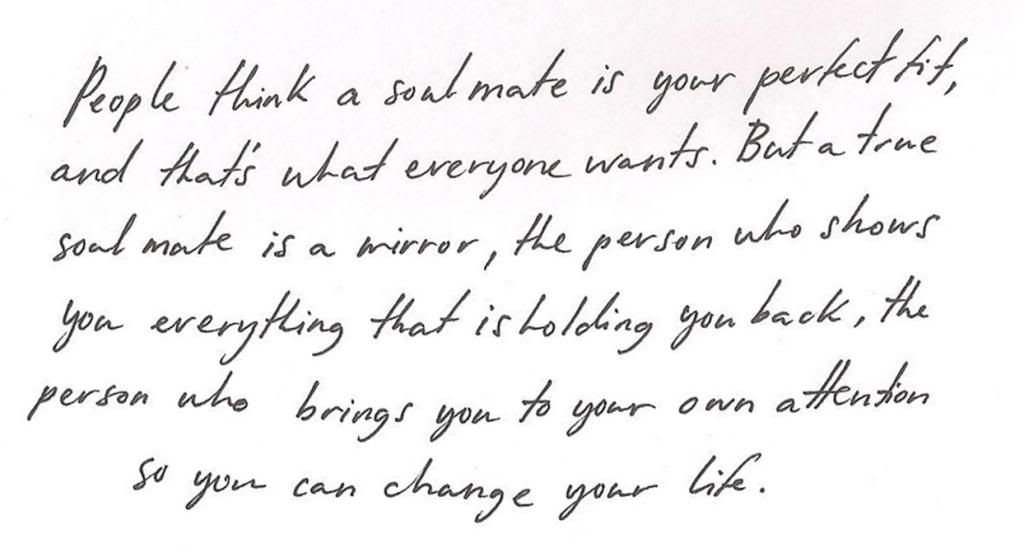 People think a soul mate is your perfect fit,
and that's what everyone wants. But a true
soul mate is a mirror, the person who shows
you everything that is holding you back, the
person who brings you to your own attention
so you can change your life.